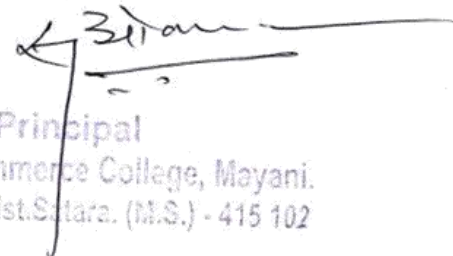 Principal
mmerce College, Mayani.
ist.Satara. (M.S.) - 415 102